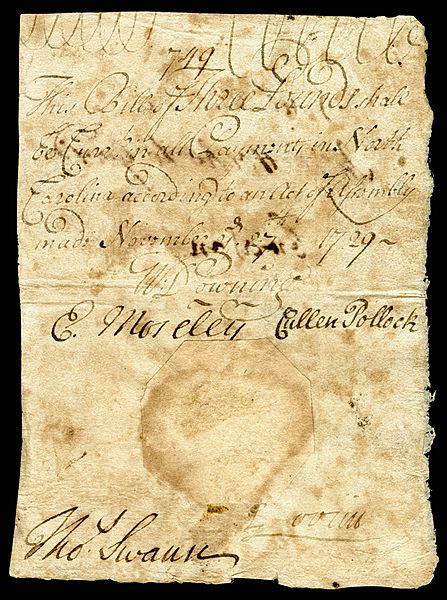 749
This Bill of Three Pounds shall
be Curr.t in all Payments in North
Carolina according to an Act of Assembly
made November y.e 27.th 1729
W Downing
E. Moseley Cullen Pollock
Tho.s Swann